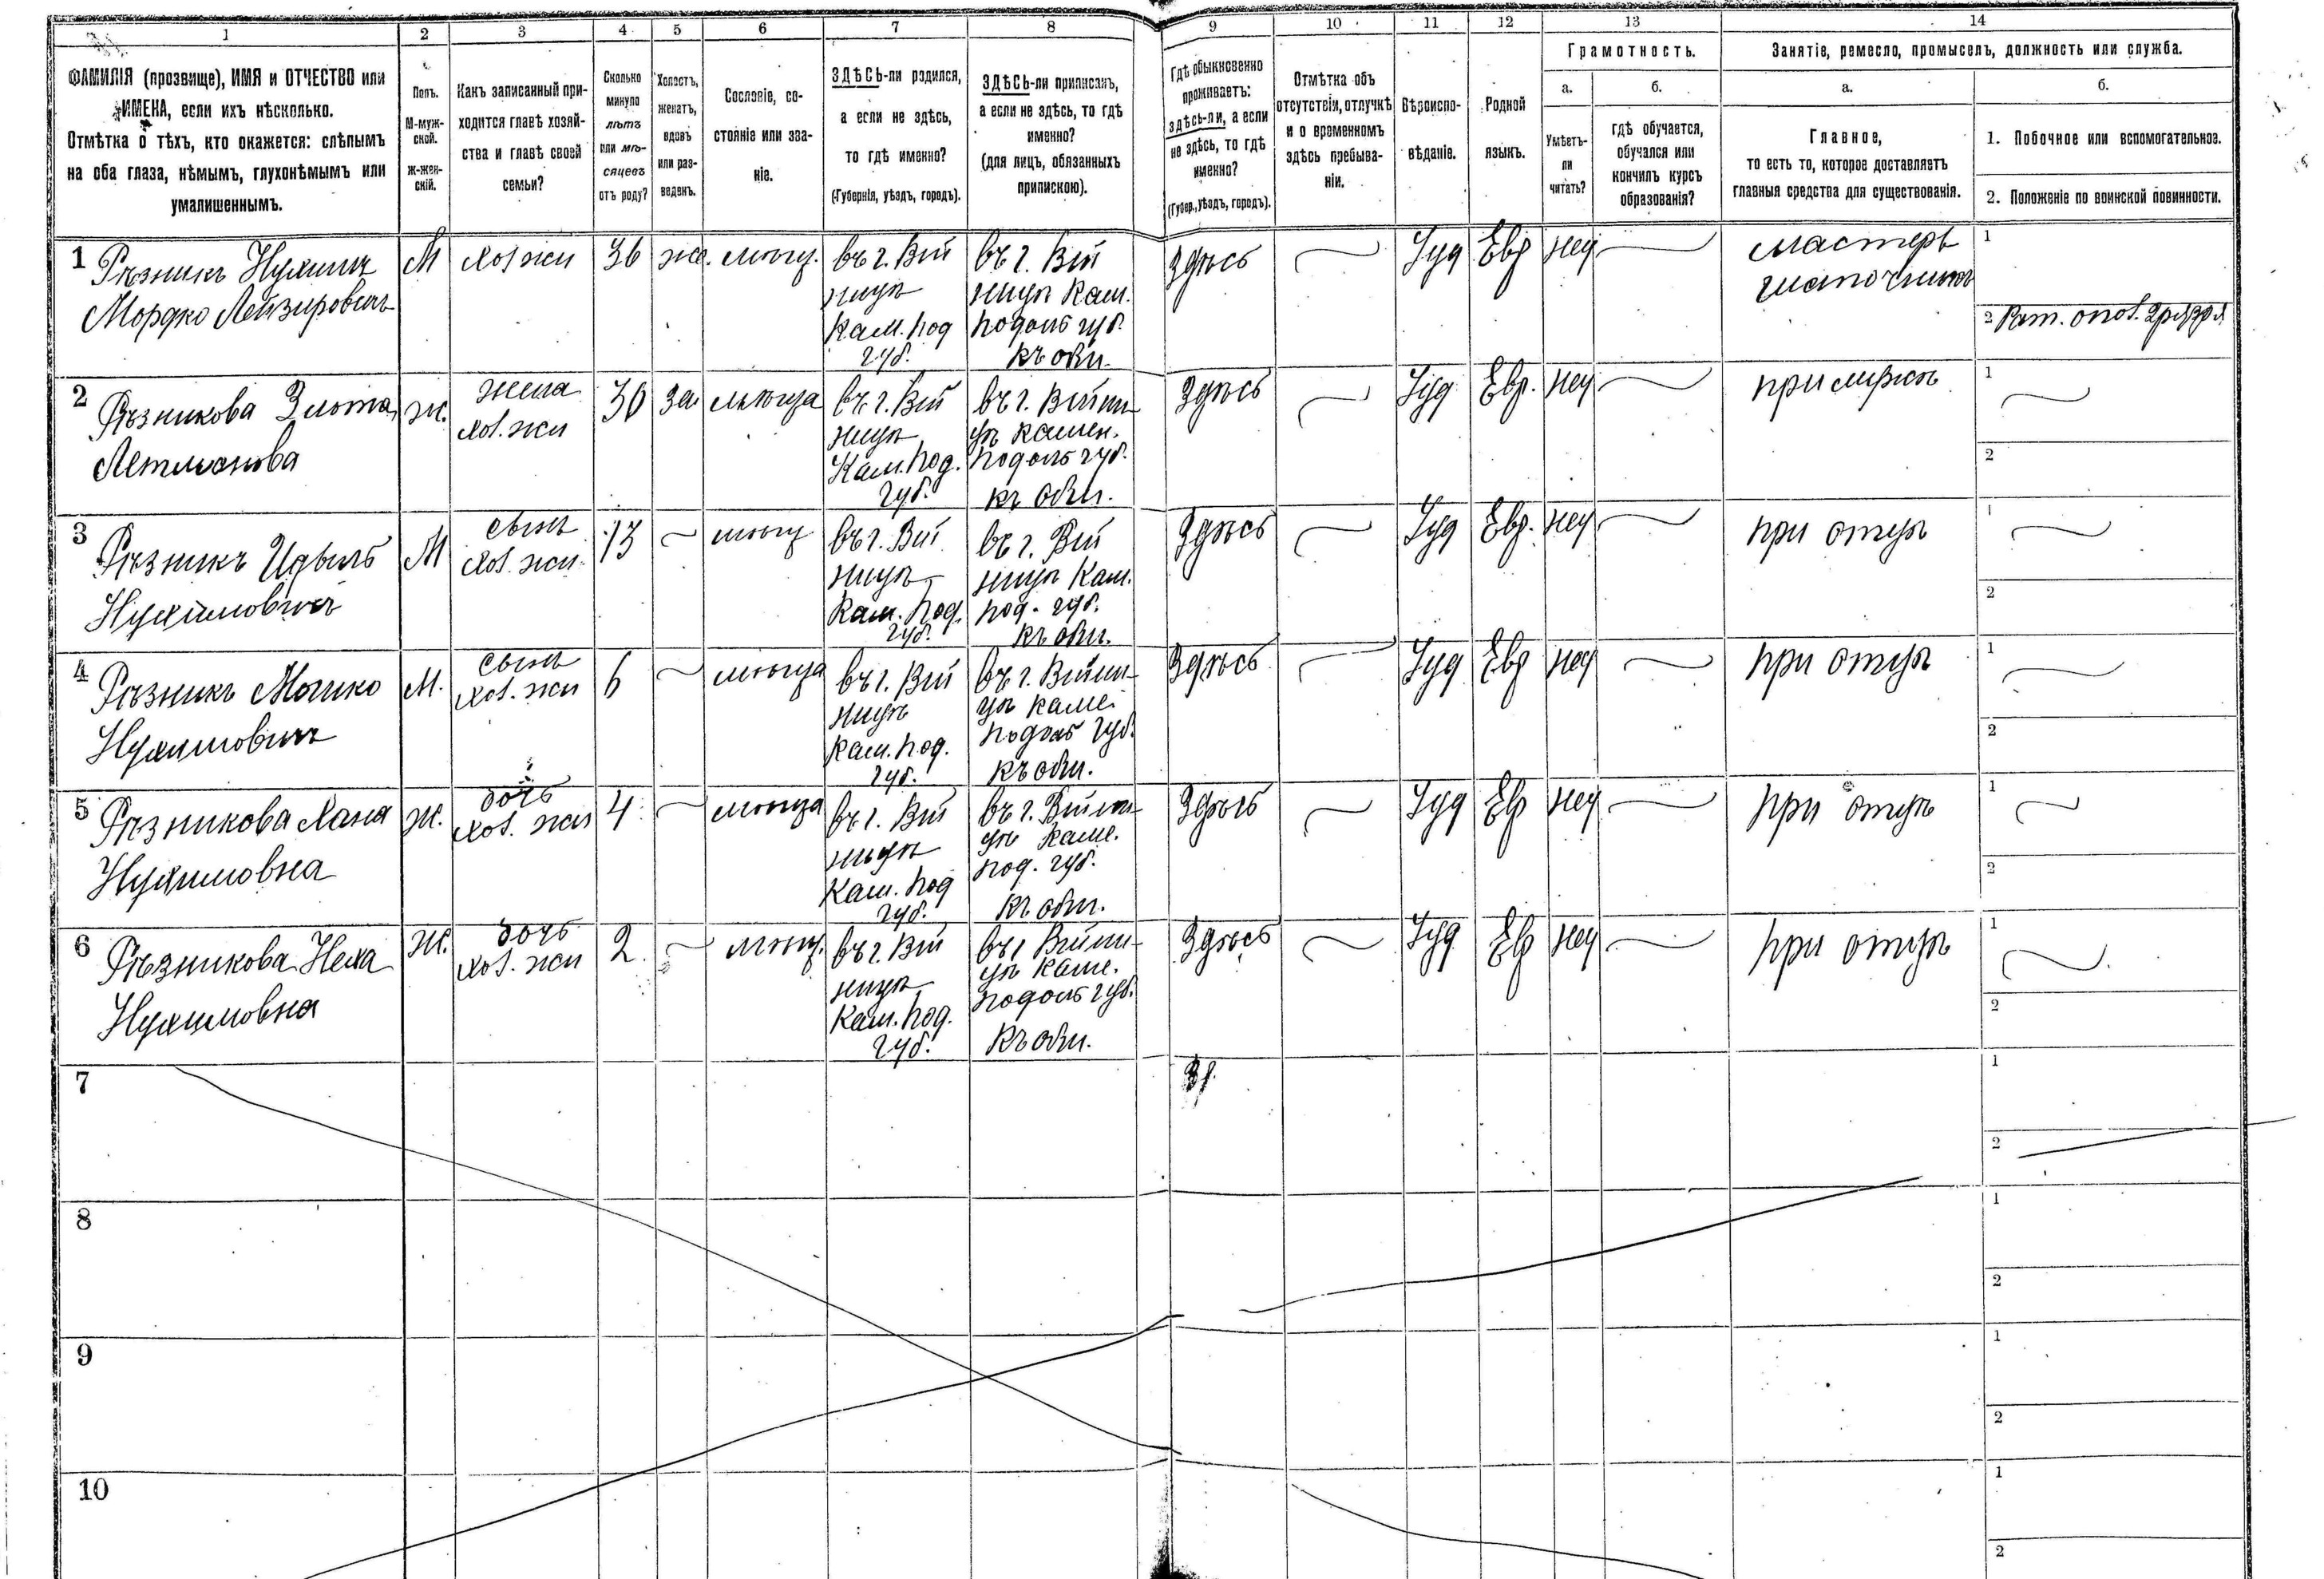 1 2 3 4 5 6 7 8 9 10 11 12 13 14
ФАМИЛІЯ (прозвище), ИМЯ и ОТЧЕСТВО или
ИМЕНА, если ихъ нѣсколько.
Отмѣтка о тѣхъ, кто окажется: слѣпымъ
на оба глаза, нѣмымъ, глухонѣмымъ или
умалишеннымъ.
Полъ.
М-муж-
ской.
Ж-жен-
скій.
Какъ записанный при-
ходится главѣ хозяй-
ства и главѣ своей
семьи?
Сколько
минуло
лѣтъ
или мѣ-
сяцевъ
отъ роду?
Холостъ,
женатъ,
вдовъ
или раз-
веденъ.
Сословіе, со-
стояніе или зва-
ніе.
ЗДѢСЬ-ли родился,
а если не здѣсь,
то гдѣ именно?
(Губернія, уѣздъ, городъ).
ЗДѢСЬ-ли приписанъ,
а если не здѣсь, то гдѣ
именно?
(для лицъ, обязанныхъ
припискою).
Гдѣ обыкновенно
проживаетъ:
здѣсь-ли, а если
не здѣсь, то гдѣ
именно?
(Губер., уѣздъ, городъ).
Отмѣтка объ
отсутствіи, отлучкѣ
и о временномъ
здѣсь пребыва-
ніи.
Вѣроиспо-
вѣданіе.
Родной
языкъ.
Грамотность.
а.
Умѣетъ-
ли
читать?
б.
гдѣ обучается,
обучался или
кончилъ курсъ
образованія?
Занятіе, ремесло, промыселъ, должность или служба.
а.
Главное,
то есть то, которое доставляетъ
главныя средства для существованія.
б.
1. Побочное или вспомогательное.
2. Положеніе по воинской повинности.
1
Рѣзникъ Нухимъ
Мордко Лейзировичъ
М
хоз жи
36
же.
мѣщ.
въ г. Вѣй
ницѣ
Кам. Под
губ.
въ г. Вѣй
ницѣ Кам.
Подоль губ.
къ общ.
Здѣсь
Іуд
Евр
нег
мастеръ
шапочникъ
1
2 Рат. опол. 2 разря
2
Рѣзникова Злота
жена
хоз. жи
ж.
30
за
мѣща
въ г. Вѣй
ницѣ
Кам. Под.
губ.
въ г. Вѣйни-
цѣ Камен.
Подоль губ.
къ общ.
Здѣсь
Іуд
Евр.
нег
при мужѣ
1
2
3
Рѣзникъ Идыль
Нухимовичъ
М
сынъ
хоз. жи
13
мѣщ
въ г. Вѣй
ницѣ
Кам. Под.
губ.
въ г. Вѣй
ницѣ Кам.
Под. губ.
къ общ.
Здѣсь
Іуд
Евр.
нег
при отцѣ
1
2
4
Рѣзникъ Мошко
Нухимовичъ
М.
сынъ
хоз. жи
6
мѣща
въ г. Вѣй
ницѣ
Кам. Под.
губ.
въ г. Вѣйни-
цѣ Каме.
Подоль губ.
къ общ.
Здѣсь
Іуд
Евр
нег
при отцѣ
1
2
5
Рѣзникова Хана
Нухимовна
ж.
дочь
хоз. жи
4
мѣща
въ г. Вѣй
ницѣ
Кам. Под
губ.
въ г. Вѣйни-
цѣ Каме.
Под. губ.
къ общ.
Здѣсь
Іуд
Ев
нег
при отцѣ
1
2
6
Рѣзникова Неха
Нухимовна
ж.
дочь
хоз. жи
2
мѣщ.
въ г. Вѣй
ницѣ
Кам. Под.
губ.
въ г Вѣйни-
цѣ Каме.
Подоль губ.
къ общ.
Здѣсь
Іуд
Ев
нег
при отцѣ
1
2
7
1
2
8
1
2
9
1
2
10
1
2